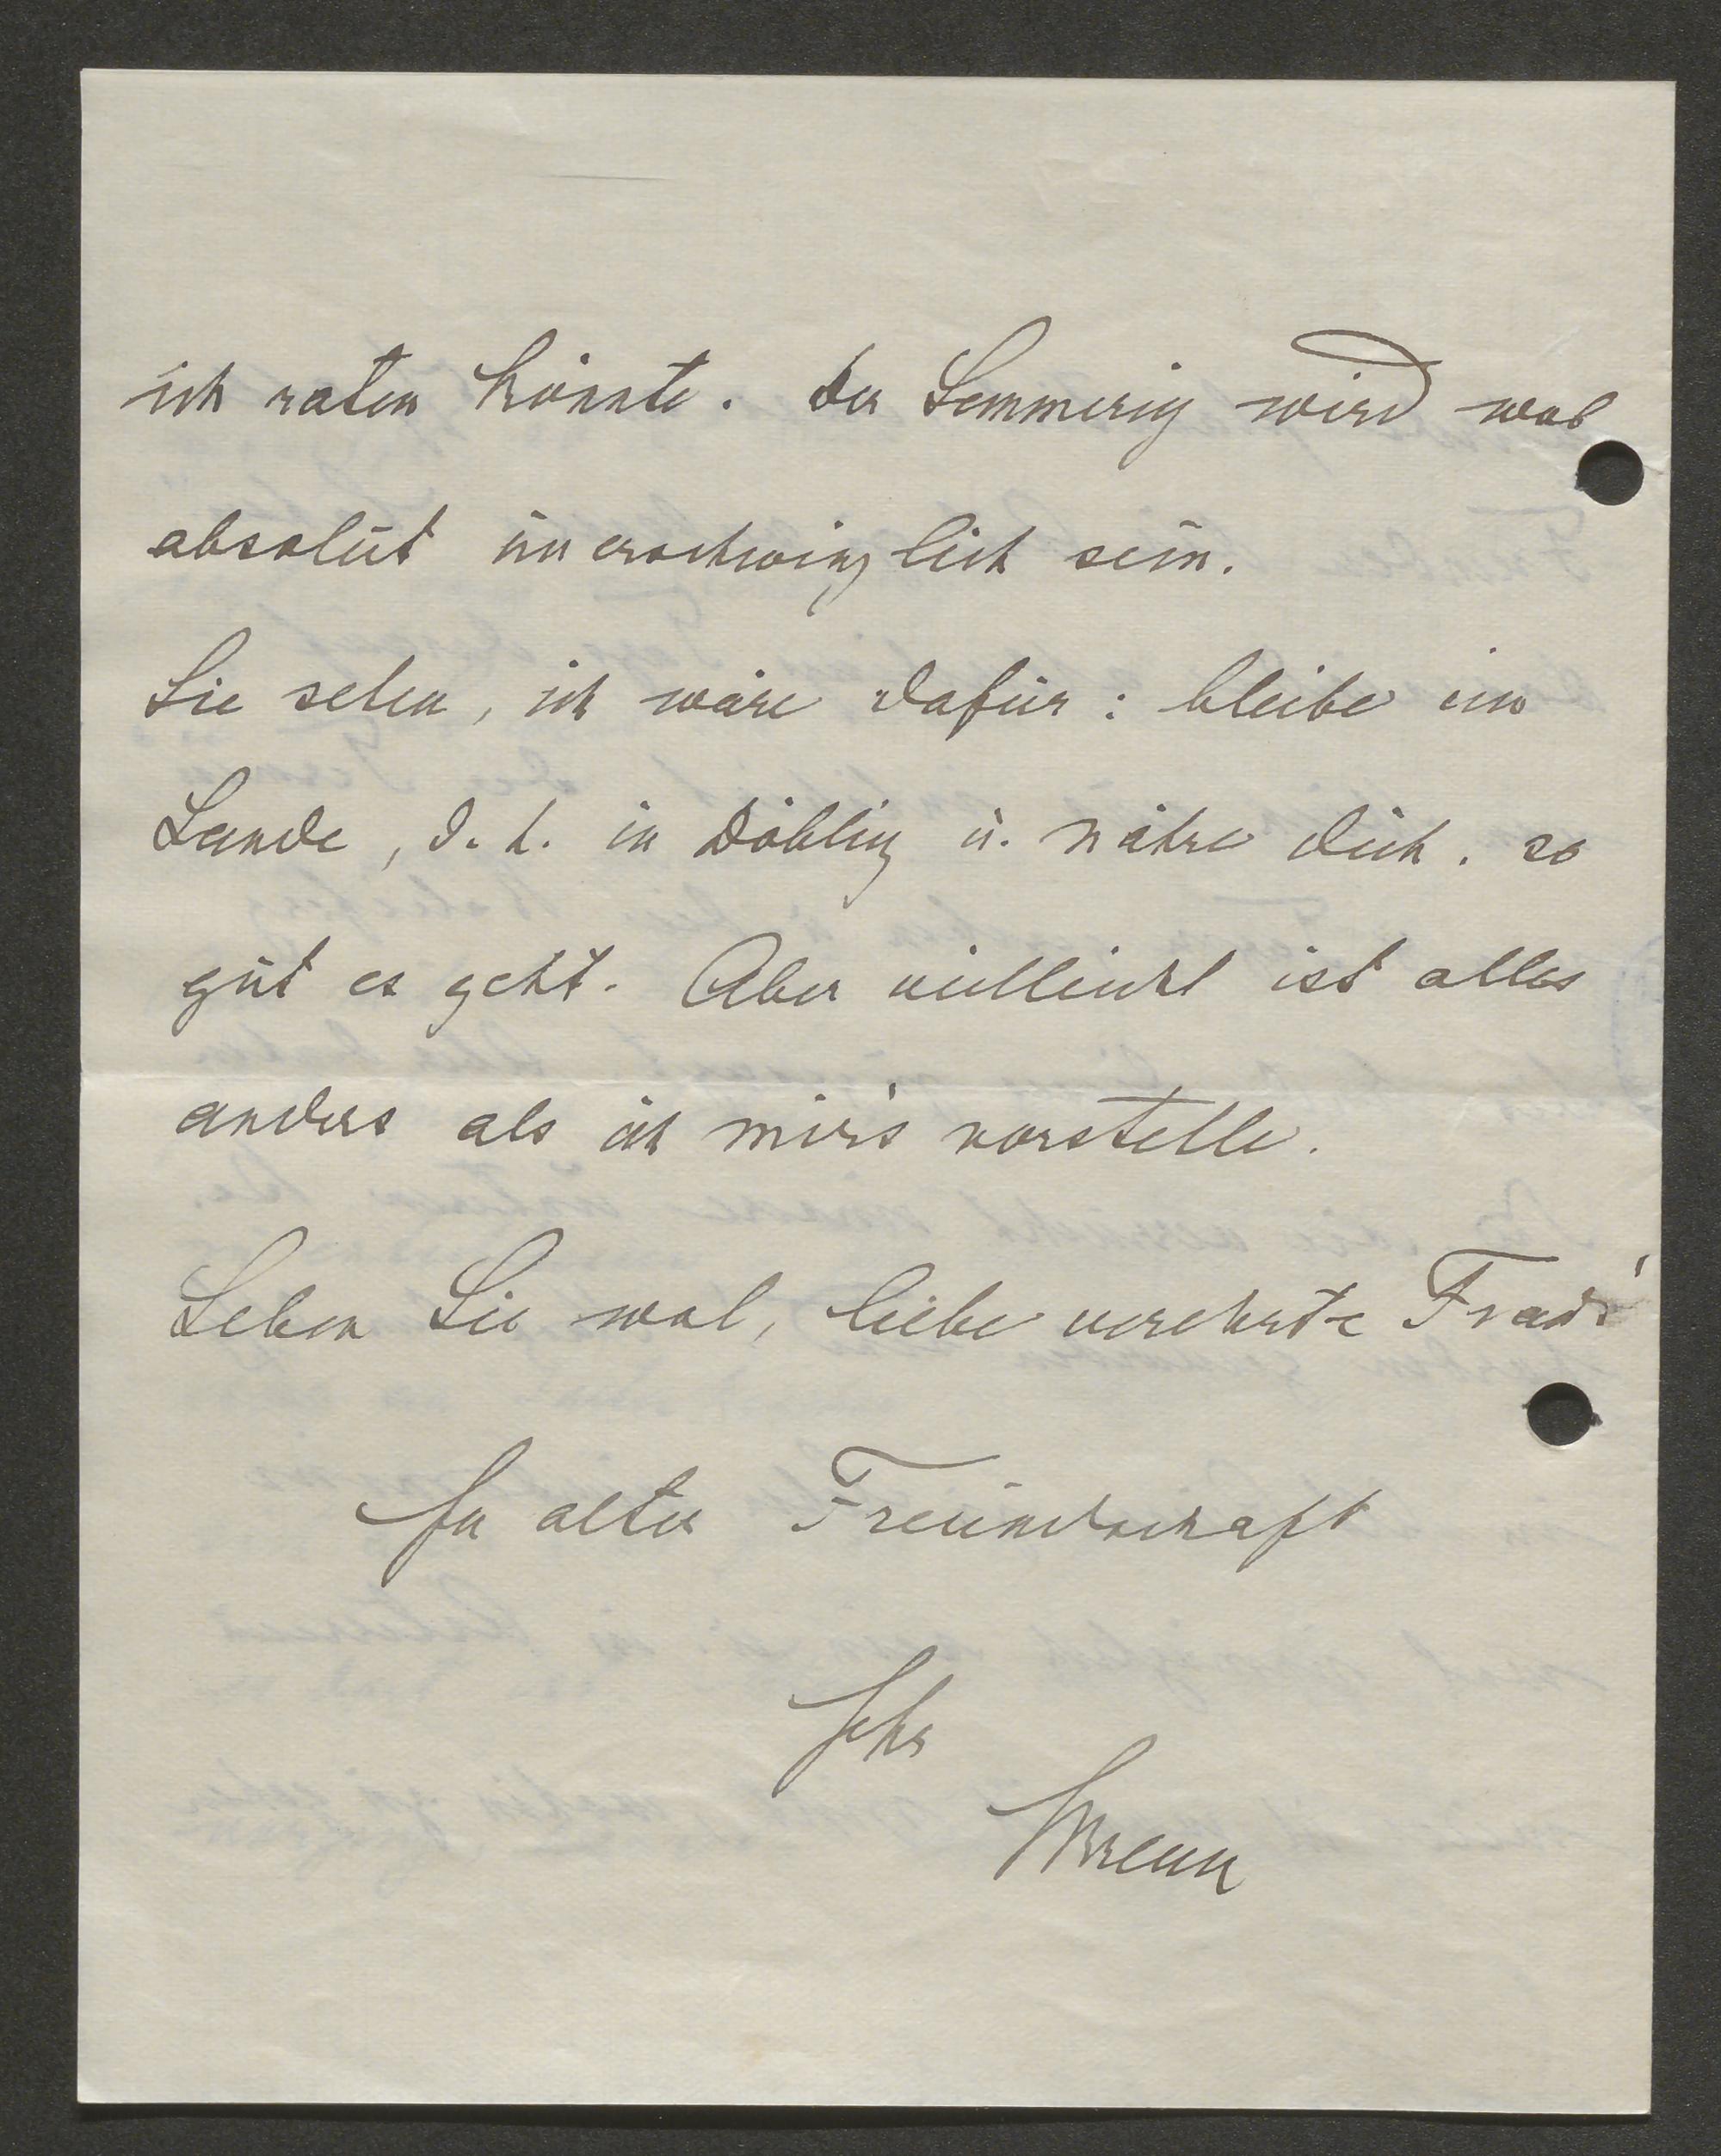 ich raten könnte. Der Semmering wird wol
absolut unerschwinglich sein.
Sie sehen, ich wäre dafür: bleibe im
Lande, d. h. in Döbling u. nähre dich. so
gut es geht. Aber vielleicht ist alles
anders als ich mir's vorstelle.
Leben Sie wol, liebe verehrte
In alter Freundschaft
Ihr